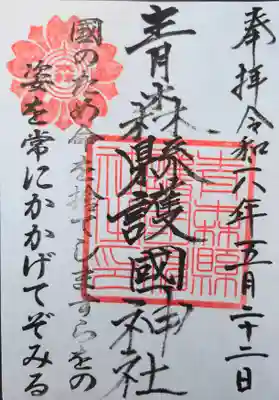 奉拝 令和八年 五月二十二日
青森縣護國神社
國のため命を捨てしますらをの
姿を常にかかげてぞみる